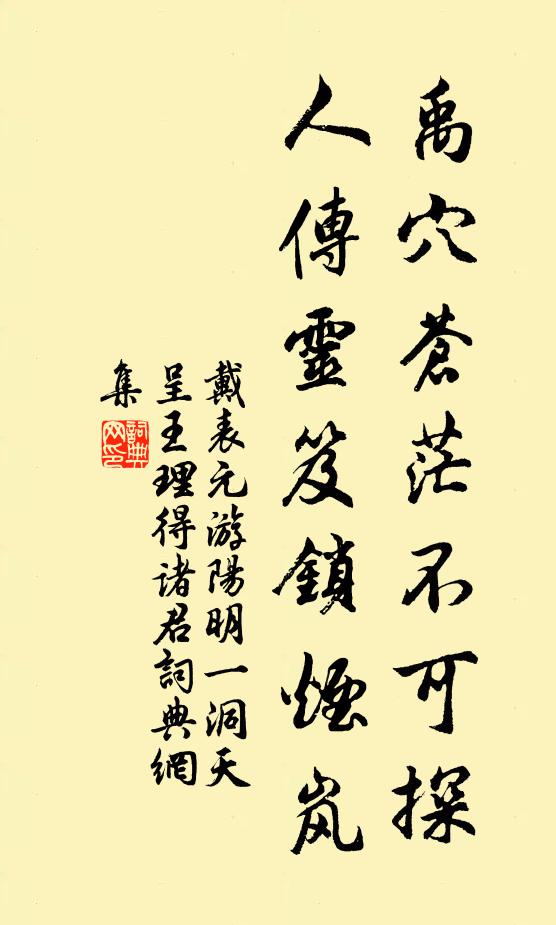 禹穴蒼茫不可探
人傳靈笈鎖煙岚
戴表元游陽明一洞天
呈王理得诸君詞典網
集
詞典网印